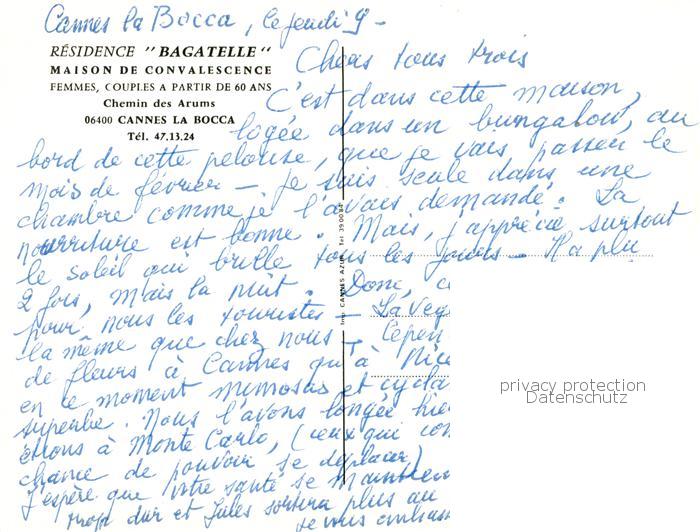 Cannes la Bocca, le jeudi 9 -
RÉSIDENCE "BAGATELLE"
MAISON DE CONVALESCENCE
FEMMES, COUPLES A PARTIR DE 60 ANS
Chemin des Arums
06400 CANNES LA BOCCA
Tél. 47.13.24
Chers tous trois
C'est dans cette maison,
logée dans un bungalow, au
bord de cette pelouse, que je vais passer le
mois de février - Je suis seule dans une
chambre comme je l'avais demandé. La
nourriture est bonne. Mais, j'apprécie surtout
le soleil qui brille tous les jours - Il a plu
2 fois, mais la nuit. Donc, c
pour nous les touristes - La Vég
la même que chez nous - Cepen
de fleurs à Cannes qu'à Nice
en ce moment mimosas et cycla
superbe. Nous l'avons longée hie
étions à Monte Carlo, (ceux qui con
chance de pouvoir se déplacer)
J'espère que votre santé se maintien
trop dur et Jules sortira plus au
Je vous embrass
Imp. CANNES AZUR Tel 39 00
privacy protection
Datenschutz